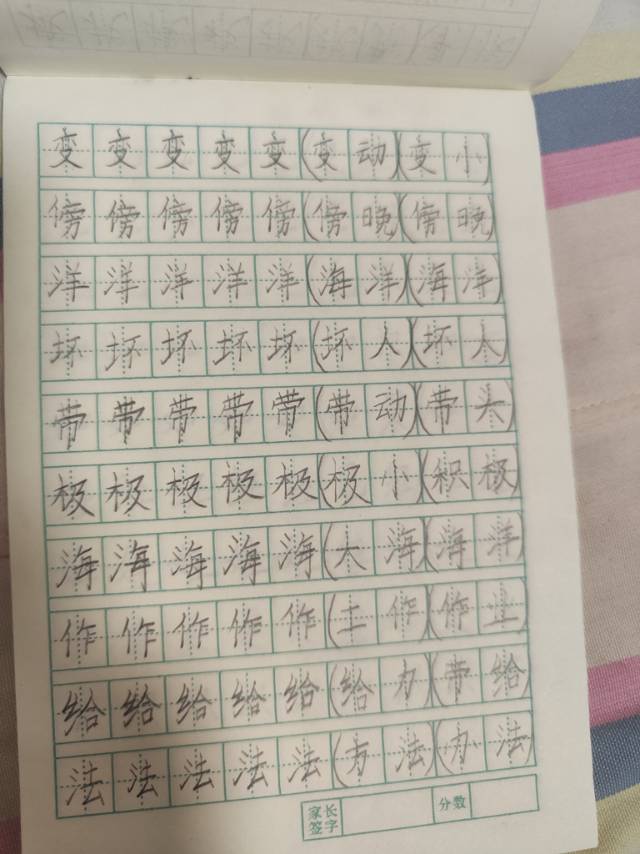 变变变变变(变动)(变小)
傍傍傍傍傍(傍晚)(傍晚)
洋洋洋洋洋(海洋)(海洋)
坏坏坏坏坏(坏人)(坏人)
带带带带带(带动)(带头)
极极极极极(极小)(积极)
海海海海海(大海)(海洋)
作作作作作(工作)(作业)
给给给给给(给力)(带给)
法法法法法(方法)(办法)
家长签字 分数